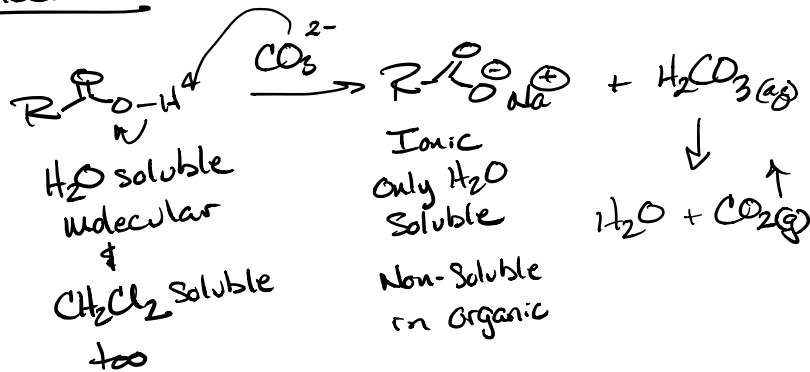 CO₃²⁻
R O O-H → R O O⊖ Na⊕ + H₂CO₃(aq)
H₂O soluble
molecular
&
CH₂Cl₂ soluble
too
Ionic
Only H₂O
Soluble
Non-Soluble
in organic
↓
H₂O + CO₂(g) ↑